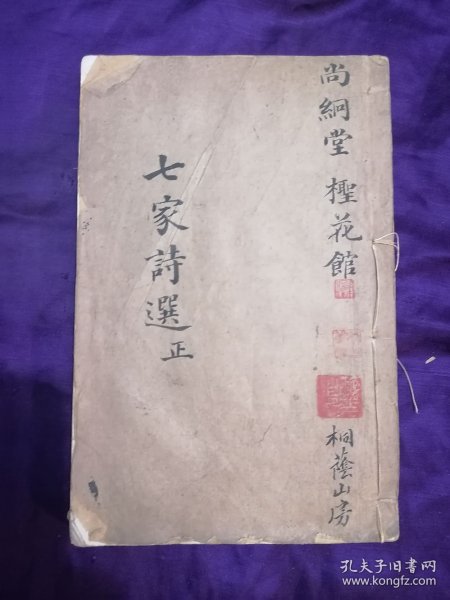 尚絅堂 檉花館
桐蔭山房
七家詩選 正
孔夫子旧书网
www.kongfz.com